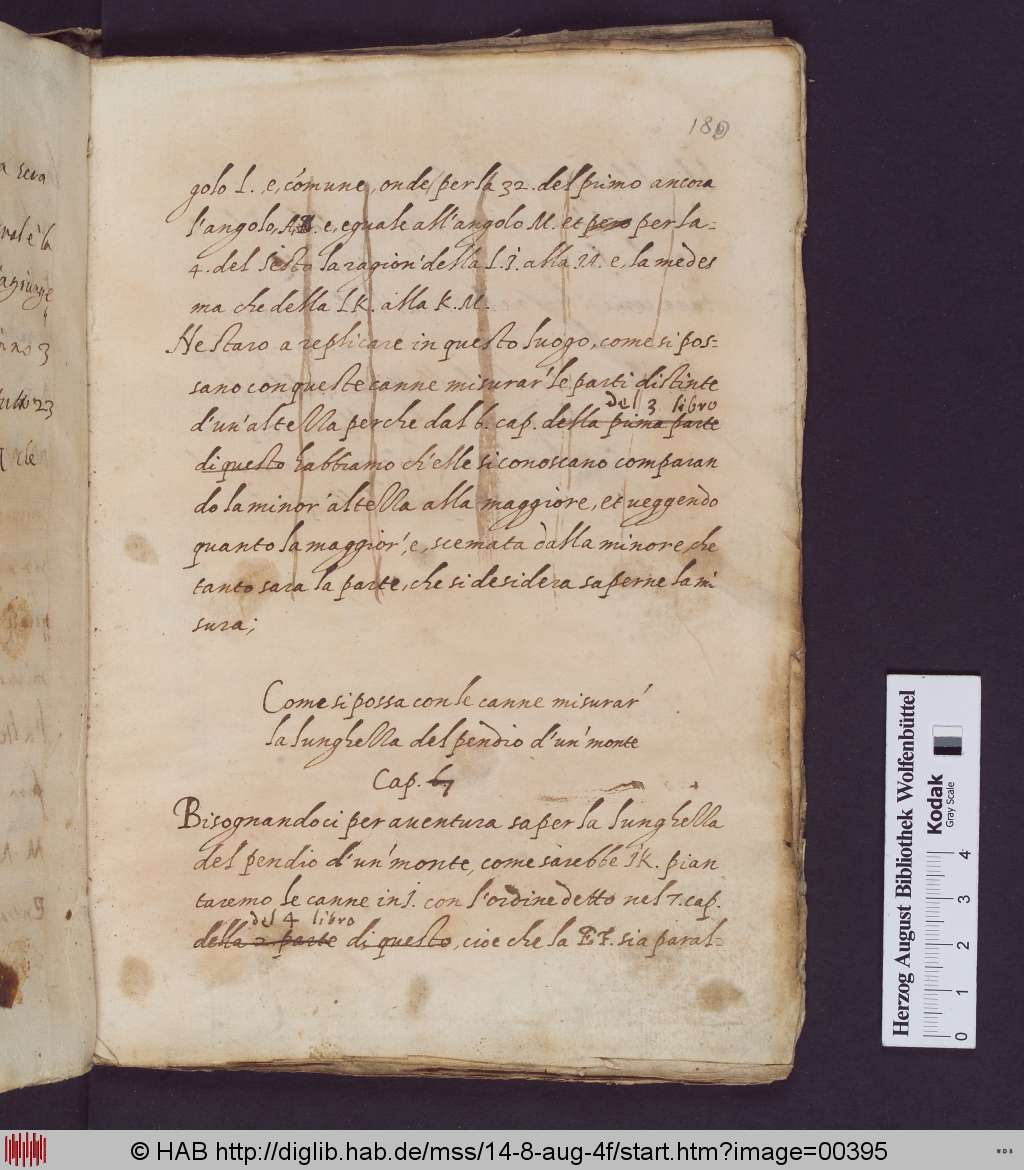 golo I. e, cómune, onde per la 32. del primo ancora
l'angolo, e, eguale all'angolo M. et pero per la-
4. del sesto la ragion' della I. I. alla e, la medes
ma che della I K. alla K. M.
Ne staro a replicare in questo luogo, come si pos=
sano con queste canne misurar' le parti distinte
del 3 libro
d'un' altezza perche dal 6. cap. della prima parte
di questo habbiamo ch'elle si conoscano comparan
do la minor' altezza alla maggiore, et veggendo
quanto la maggior', e, scemata dalla minore, che
tanto sara la parte, che si desidera saperne la mi
sura;
Come si possa con le canne misurar'
la lunghezza del pendio d'un' monte
Cap.
Bisognandoci per aventura saper la lunghezza
del pendio d'un' monte, come sarebbe IK. pian
taremo le canne in I. con l'ordine detto nel 7. cap.
del 4 libro
della 2 parte di questo, cioe che la EF. sia paral=
Herzog August Bibliothek Wolfenbüttel
Kodak
Gray Scale
0 1 2 3 4
© HAB http://diglib.hab.de/mss/14-8-aug-4f/start.htm?image=00395